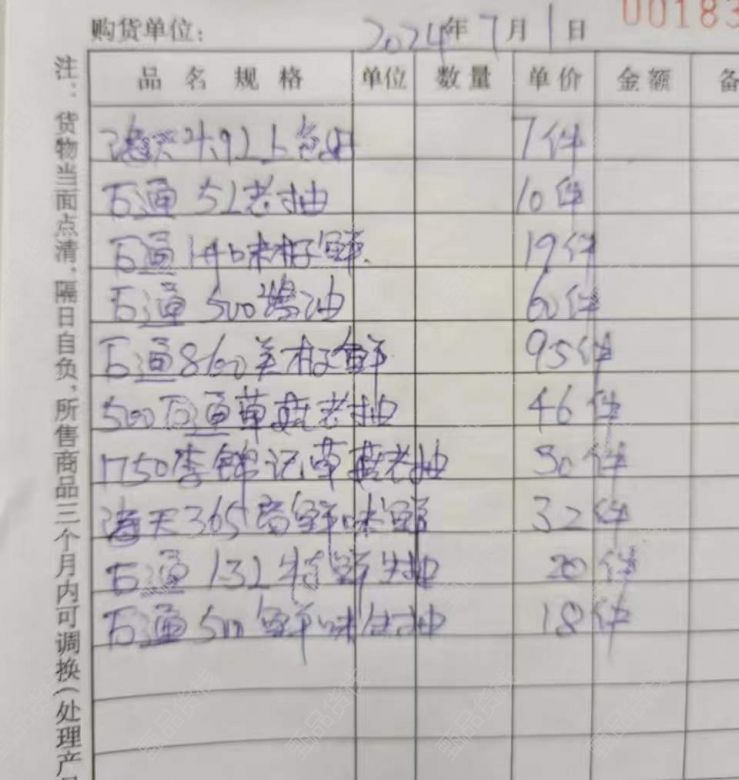 00183
购货单位:
2024年7月1日
品名规格 单位 数量 单价 金额 备
海天4.9L上色 7件
石通5L老抽 10件
石通 味极鲜 19件
石通 500 油 60件
石通860 极鲜 95件
500石通草菇老抽 46件
1750李锦记草菇老抽 50件
海天365 鲜味鲜 32件
石通1.3L特鲜生抽 20件
石通500鲜味生抽 18件
注:货物当面点清,隔日自负,所售商品三个月内可调换(处理产